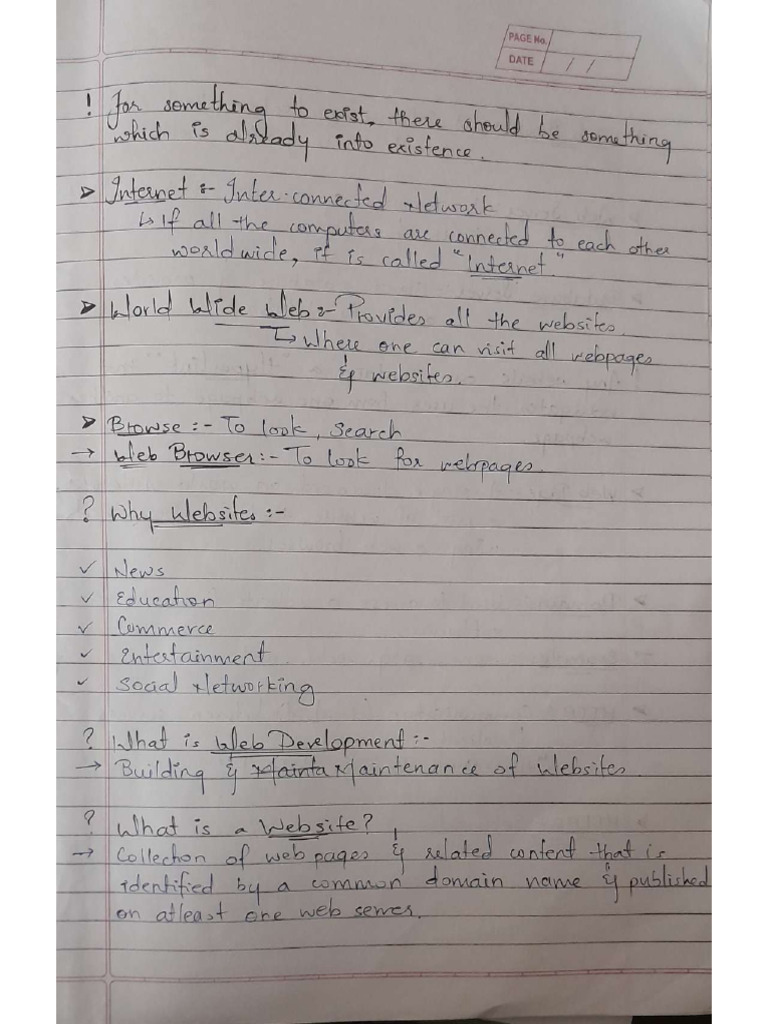 PAGE No.
DATE / /
! For something to exist, there should be something
which is already into existence.
➤ Internet :- Inter-connected Network
↳ If all the computers are connected to each other
worldwide, it is called "Internet."
➤ World Wide Web :- Provides all the websites.
↳ Where one can visit all webpages
& websites.
➤ Browse :- To look, Search
→ Web Browser :- To look for webpages.
? Why Websites :-
✓ News
✓ Education
✓ Commerce
✓ Entertainment
✓ Social Networking
? What is Web Development :-
→ Building & Mainta Maintenance of Websites.
? What is a Website?
→ Collection of web pages & related content that is
identified by a common domain name & published
on atleast one web server.